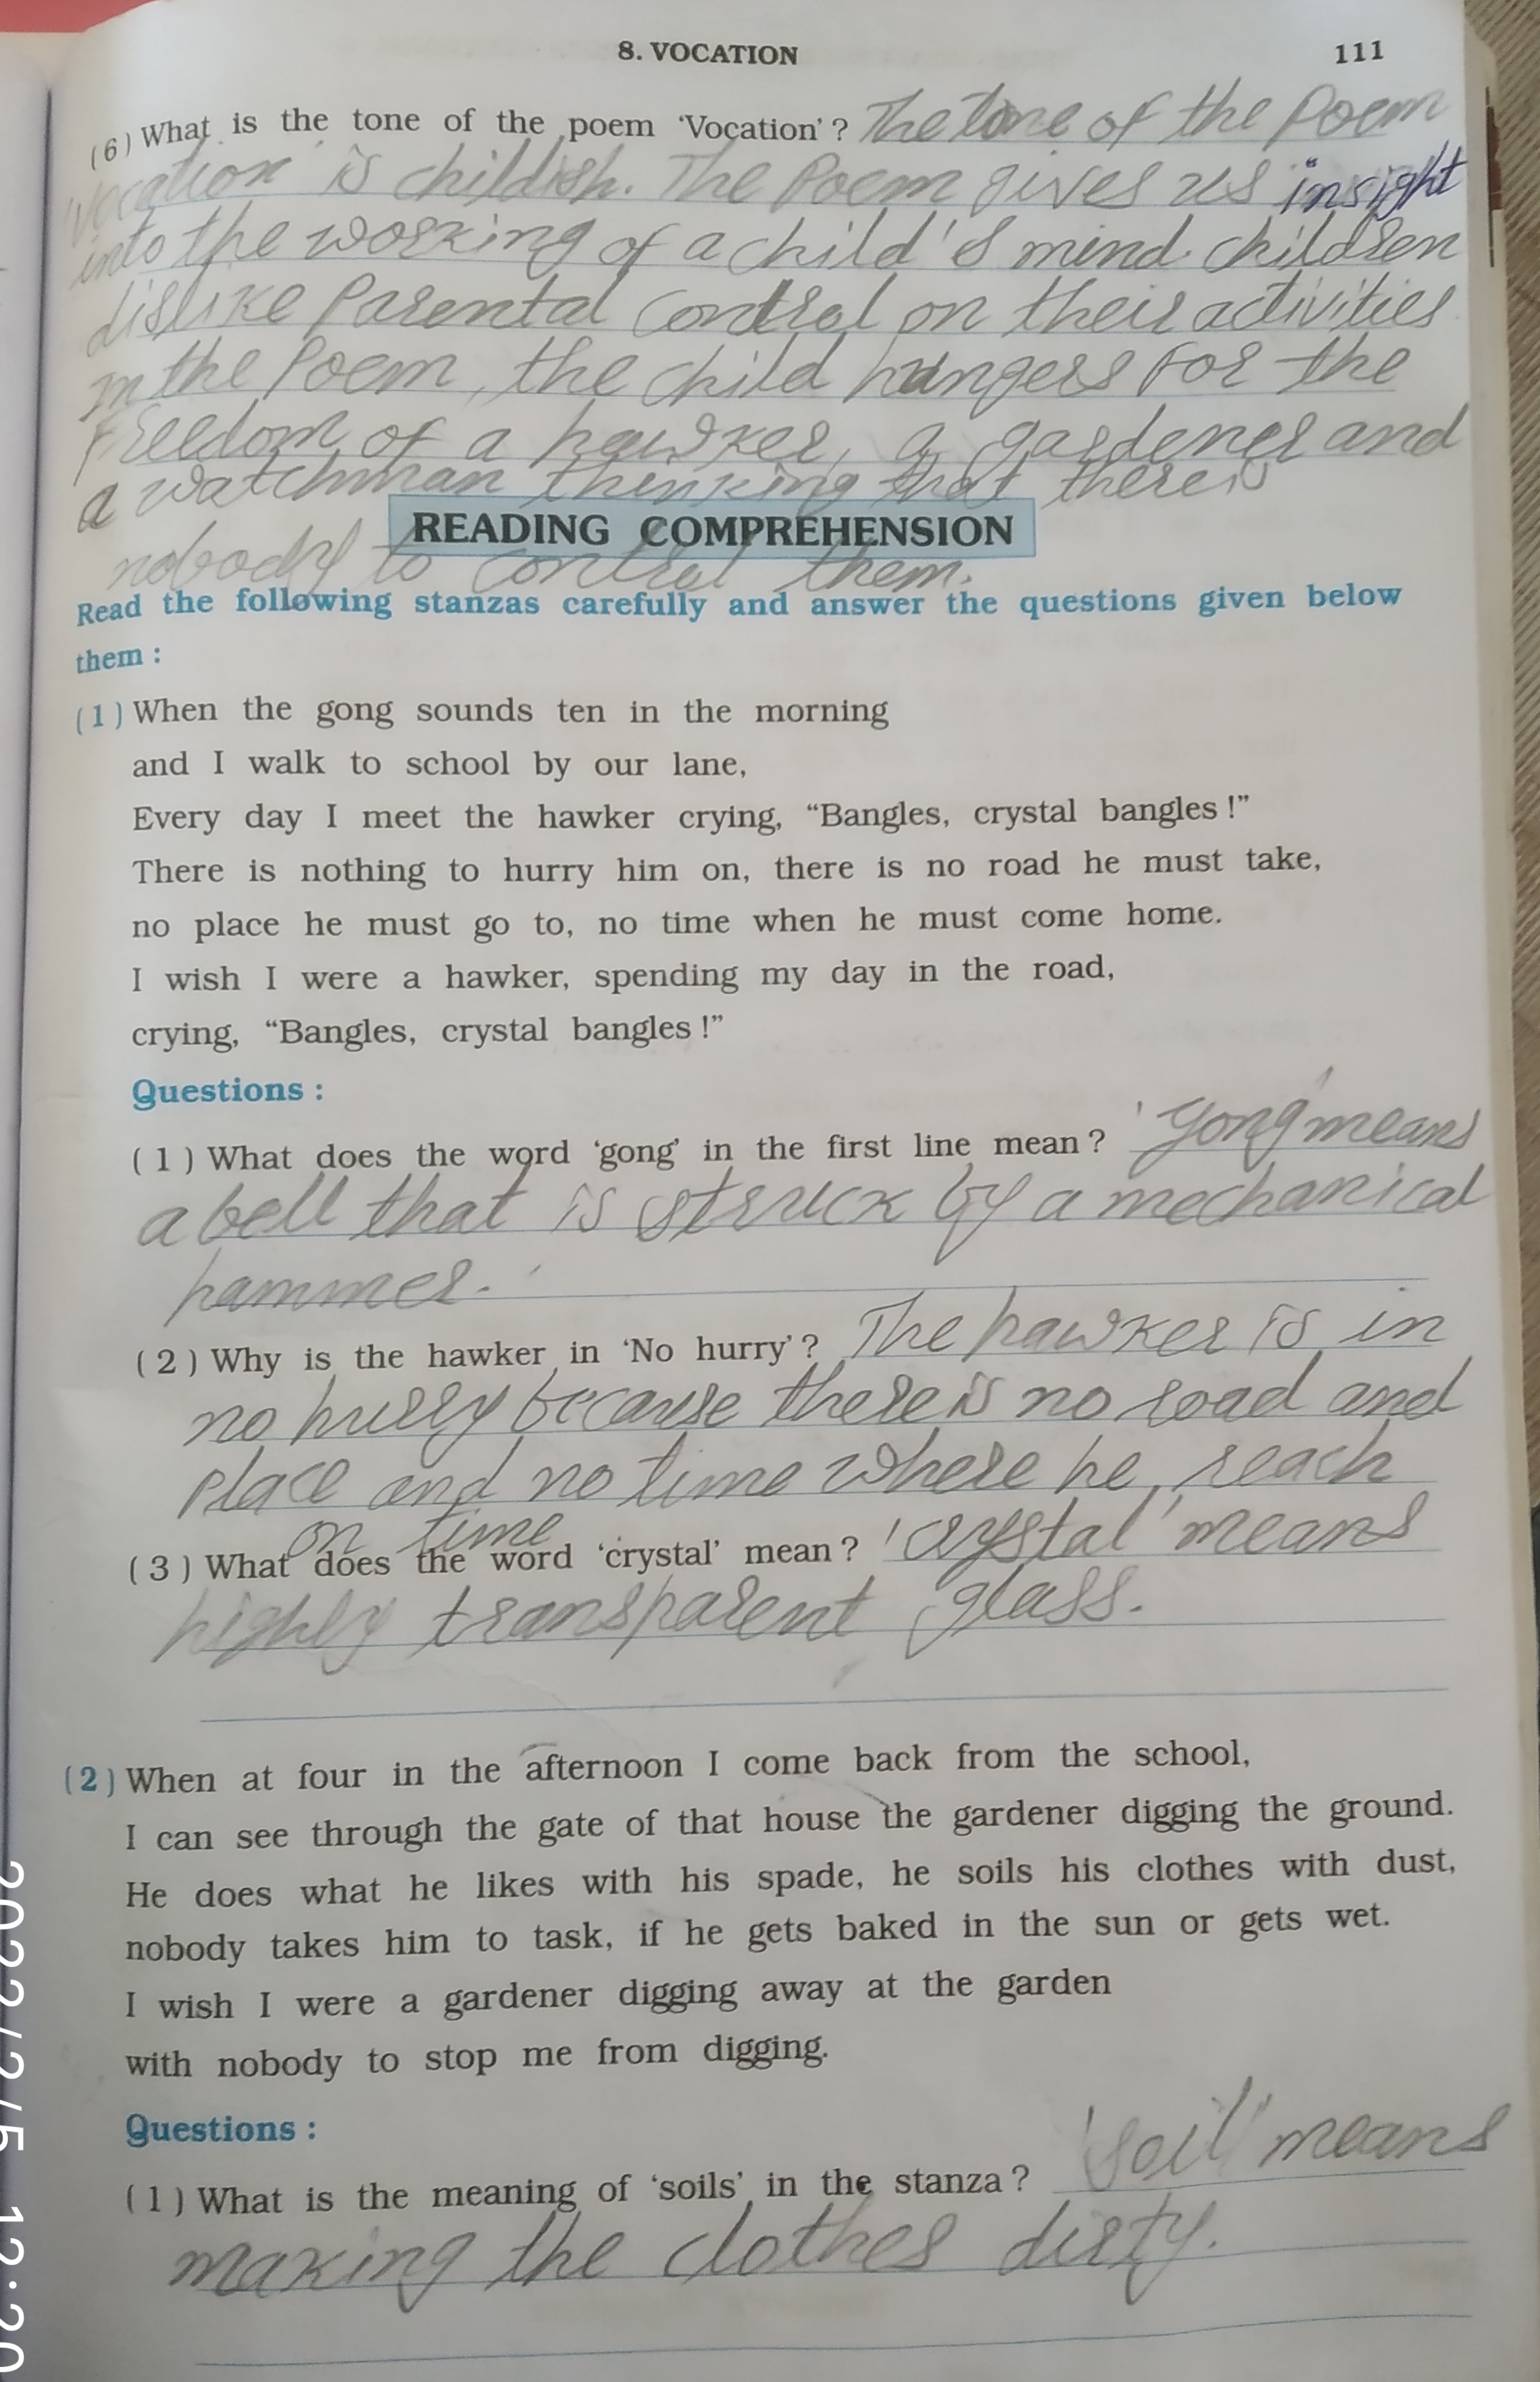 8. VOCATION 111
(6) What is the tone of the poem 'Vocation'? The tone of the Poem
Vocation is childish. The Poem gives us insight
into the working of a child's mind. children
dislike Parental control on their activities
In the Poem, the child hungers for the
freedom of a hawker, a gardener and
a watchman thinking that there is
READING COMPREHENSION
nobody to control them.
Read the following stanzas carefully and answer the questions given below
them :
(1) When the gong sounds ten in the morning
and I walk to school by our lane,
Every day I meet the hawker crying, “Bangles, crystal bangles !”
There is nothing to hurry him on, there is no road he must take,
no place he must go to, no time when he must come home.
I wish I were a hawker, spending my day in the road,
crying, “Bangles, crystal bangles !”
Questions :
(1) What does the word 'gong' in the first line mean? 'gong' means
a bell that is struck by a mechanical
hammer.
(2) Why is the hawker in 'No hurry'? The hawker is in
no hurry because there is no road and
place and no time where he reach
on time
(3) What does the word 'crystal' mean? 'crystal' means
highly transparent glass.
(2) When at four in the afternoon I come back from the school,
I can see through the gate of that house the gardener digging the ground.
He does what he likes with his spade, he soils his clothes with dust,
nobody takes him to task, if he gets baked in the sun or gets wet.
I wish I were a gardener digging away at the garden
with nobody to stop me from digging.
Questions :
(1) What is the meaning of 'soils' in the stanza? 'soil' means
making the clothes dirty.
2022/2/5 12:20